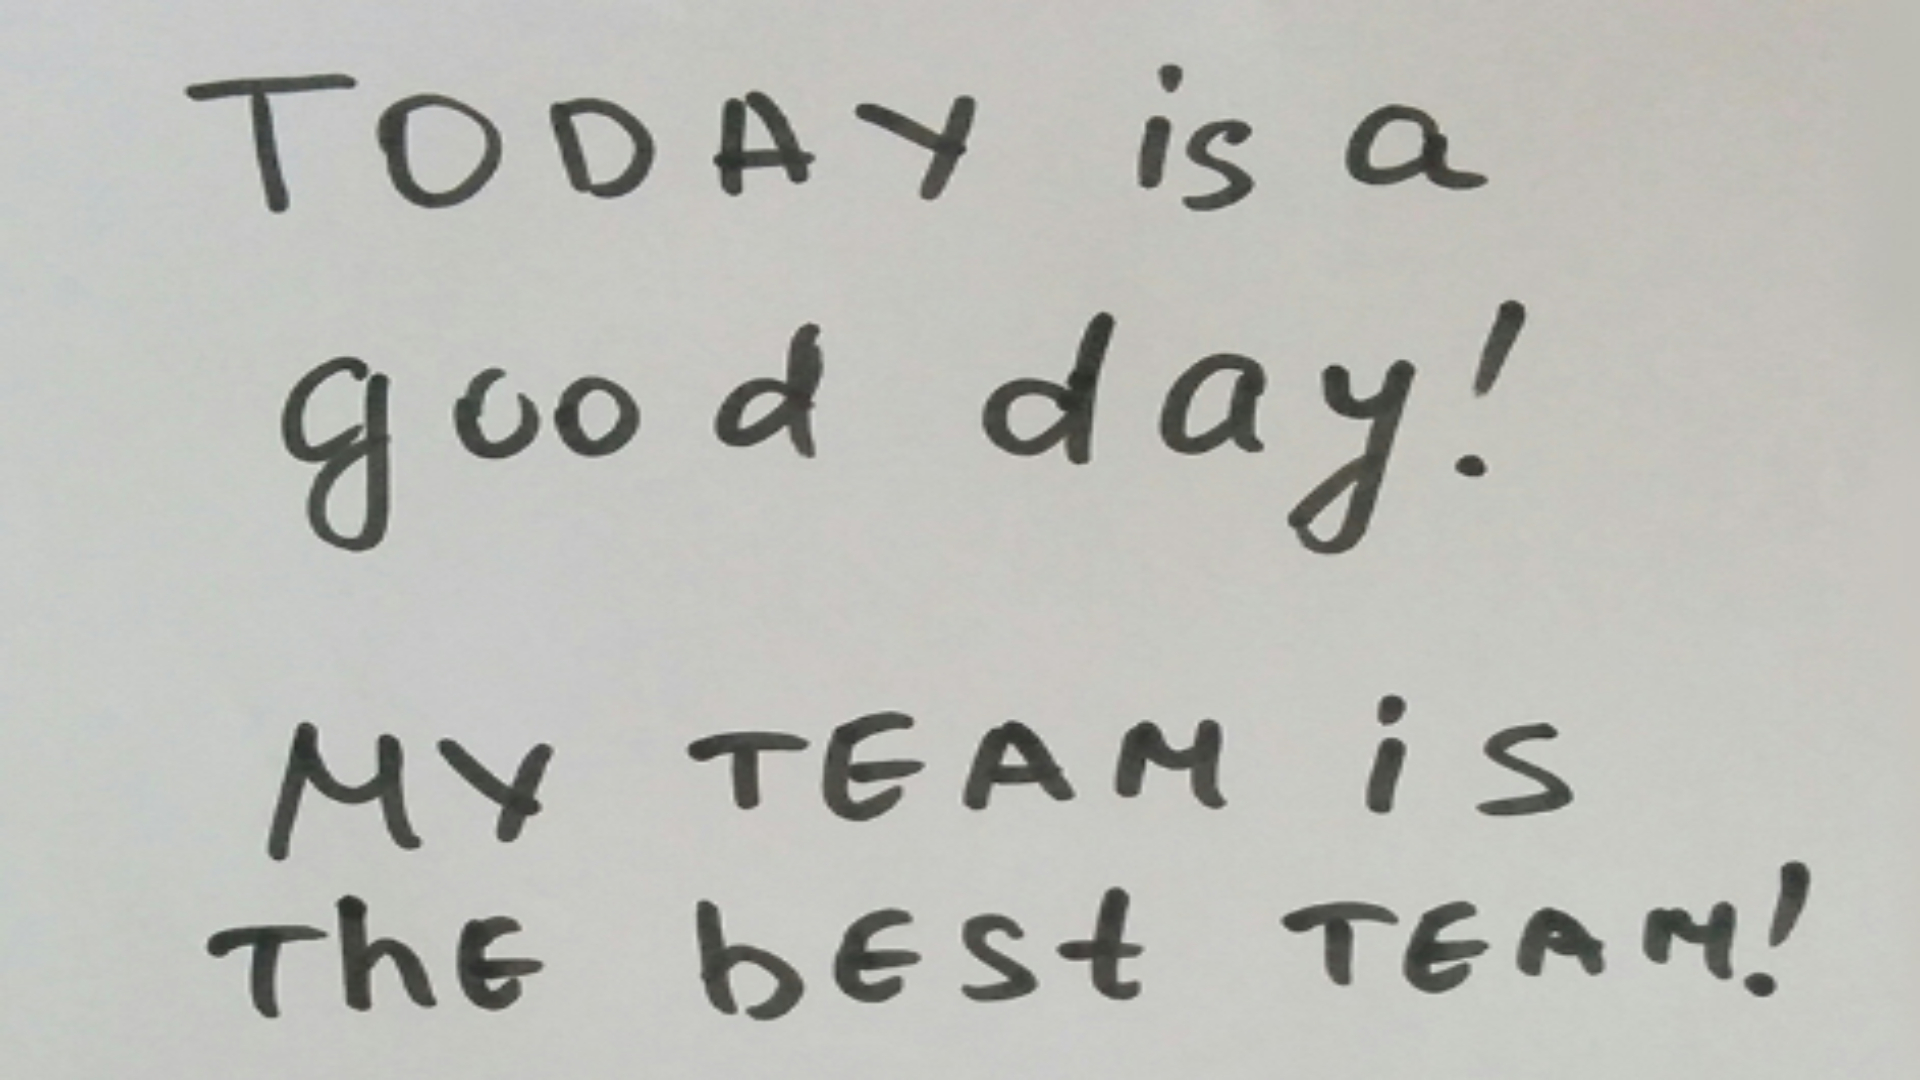 TODAY is a
good day!
MY TEAM is
ThE bEst TEAM!